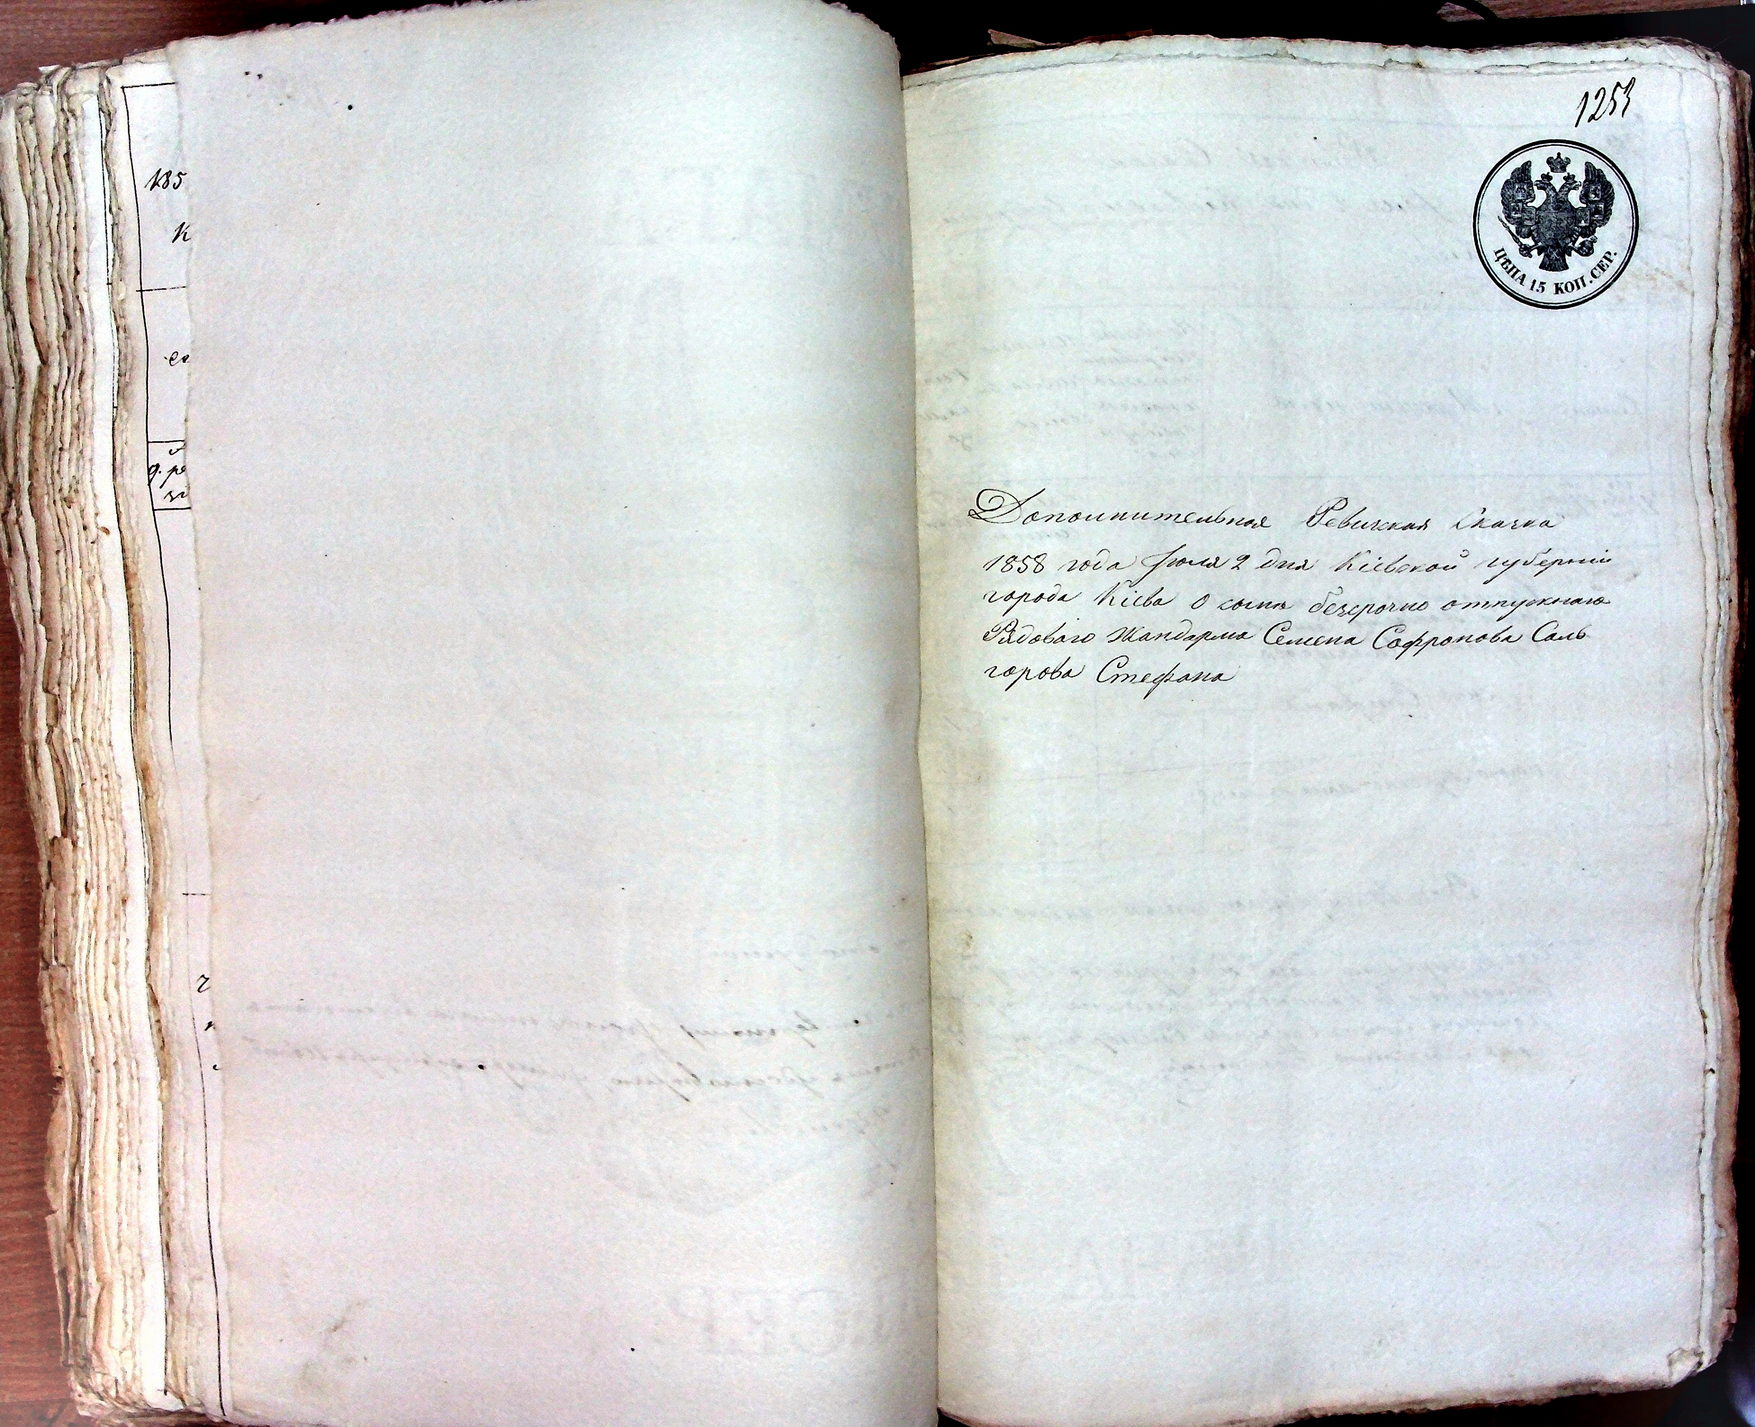 185
К
1253
ЦѢНА 15 КОП. СЕР.
Дополнительная Ревизская Сказка
1858 года Іюля 2 дня Кіевской губерніи
города Кіева о сынѣ безсрочно отпускнаго
Рядоваго Жандарма Семена Софронова Саль
горова Стефана